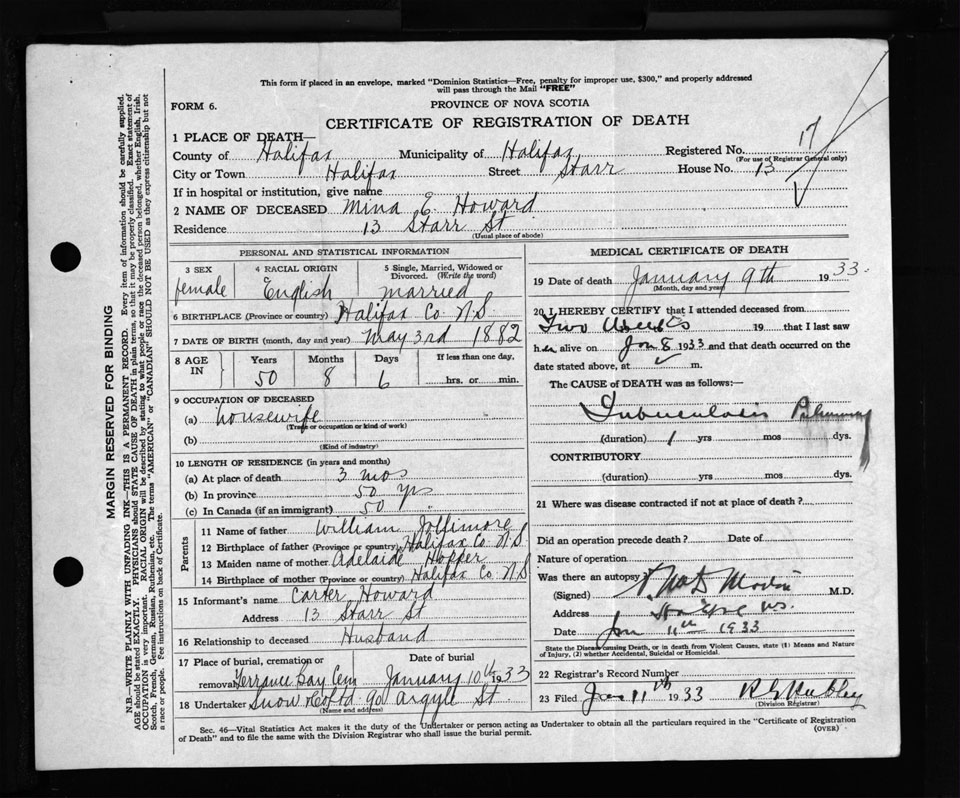 This form if placed in an envelope, marked "Dominion Statistics—Free, penalty for improper use, $300," and properly addressed
will pass through the Mail "FREE"
FORM 6.
PROVINCE OF NOVA SCOTIA
CERTIFICATE OF REGISTRATION OF DEATH
17
1 PLACE OF DEATH—
County of Halifax Municipality of Halifax Registered No.
(For use of Registrar General only)
City or Town Halifax Street Starr House No. 13
If in hospital or institution, give name
2 NAME OF DECEASED Mina E. Howard
Residence 13 Starr St
(Usual place of abode)
PERSONAL AND STATISTICAL INFORMATION
3 SEX female
4 RACIAL ORIGIN English
5 Single, Married, Widowed or Divorced. (Write the word) married
6 BIRTHPLACE (Province or country) Halifax Co. N.S.
7 DATE OF BIRTH (month, day and year) May 3rd 1882
8 AGE IN Years Months Days If less than one day,
50 8 6 hrs. or min.
9 OCCUPATION OF DECEASED
(a) housewife
(Trade or occupation or kind of work)
(b)
(Kind of industry)
10 LENGTH OF RESIDENCE (in years and months)
(a) At place of death 3 mos
(b) In province 50 yrs
(c) In Canada (if an immigrant) 50
Parents
11 Name of father William Jollimore
12 Birthplace of father (Province or country) Halifax Co. N.S.
13 Maiden name of mother Adelaide Hopper
14 Birthplace of mother (Province or country) Halifax Co. N.S
15 Informant's name Carter Howard
Address 13 Starr St
16 Relationship to deceased Husband
17 Place of burial, cremation or removal Terrance Bay Cem Date of burial January 10th 1933
18 Undertaker Snow & Co Ltd 90 Argyle St
(Name and address)
MEDICAL CERTIFICATE OF DEATH
19 Date of death January 9th 1933.
(Month, day and year)
20 I HEREBY CERTIFY that I attended deceased from
Two Weeks 19 that I last saw
h er alive on Jan 8 1933 and that death occurred on the
date stated above, at m.
The CAUSE OF DEATH was as follows:
Tuberculosis Pulmonary
(duration) 1 yrs mos dys.
CONTRIBUTORY
(duration) yrs mos dys.
21 Where was disease contracted if not at place of death?
Did an operation precede death? Date of
Nature of operation
Was there an autopsy?
(Signed) M.D.
Address N.S.
Date Jan 11th 1933
State the Disease causing Death, or in death from Violent Causes, state (1) Means and Nature
of Injury, (2) whether Accidental, Suicidal or Homicidal.
22 Registrar's Record Number
23 Filed Jan 11th 1933
(Division Registrar)
Sec. 46—Vital Statistics Act makes it the duty of the Undertaker or person acting as Undertaker to obtain all the particulars required in the "Certificate of Registration
of Death" and to file the same with the Division Registrar who shall issue the burial permit.
(OVER)
MARGIN RESERVED FOR BINDING
N.B.—WRITE PLAINLY WITH UNFADING INK—THIS IS A PERMANENT RECORD. Every item of information should be carefully supplied.
AGE should be stated EXACTLY. PHYSICIANS should STATE CAUSE OF DEATH in plain terms, so that it may be properly classified. Exact statement of
OCCUPATION is very important. RACIAL ORIGIN will be described by stating to what people or race the deceased person belonged, whether English, Irish,
Scotch, French, German, Russian, Ruthenian, etc. The terms "AMERICAN" or "CANADIAN" SHOULD NOT BE USED as they express citizenship but not
a race or people. See instructions on back of Certificate.